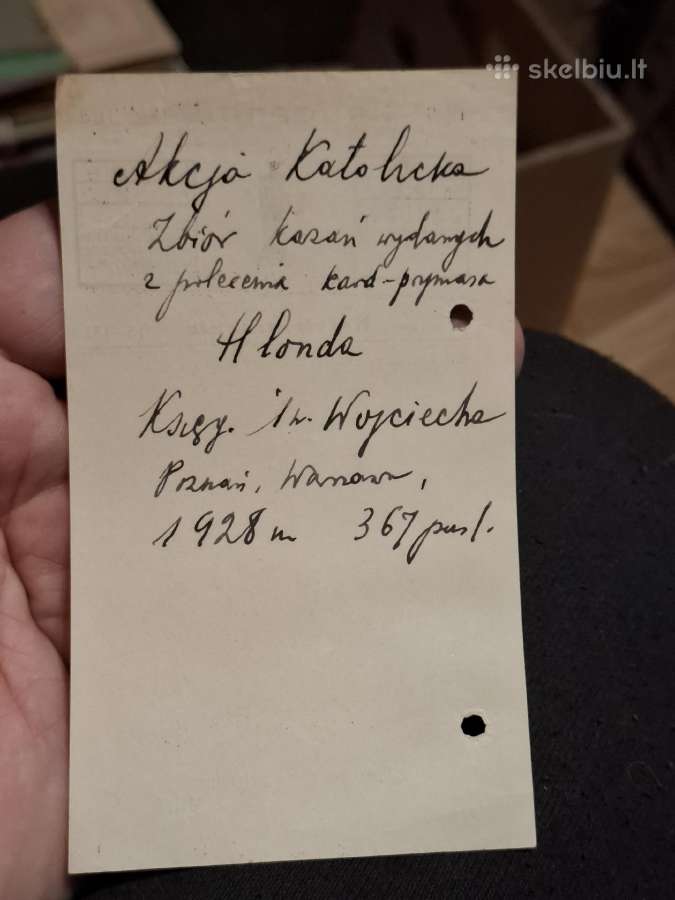 skelbiu.lt
Akcja Katolicka
Zbiór kazań wydanych
z polecenia kard-prymasa
Hlonda
Księg. św. Wojciecha
Poznań, Warszawa,
1928 m 367 pusl.